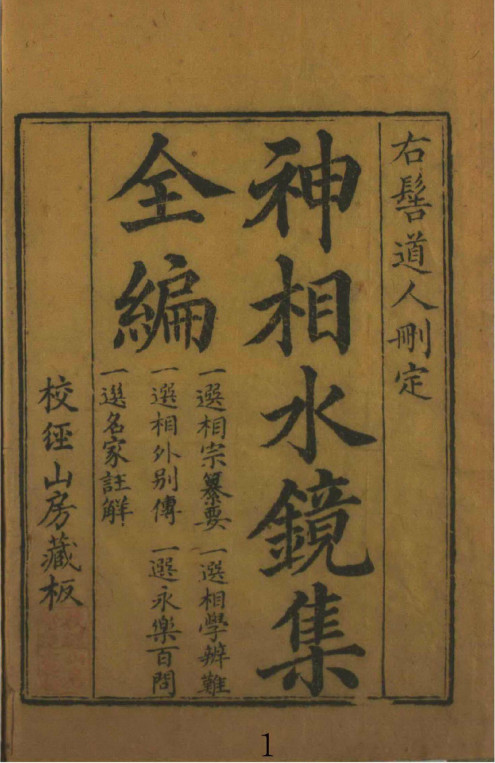 右髻道人刪定
神相水鏡集
全編
一選相宗纂要
一選相學辨難
一選相外別傳
一選永樂百問
一選名家註解
校經山房藏板
1